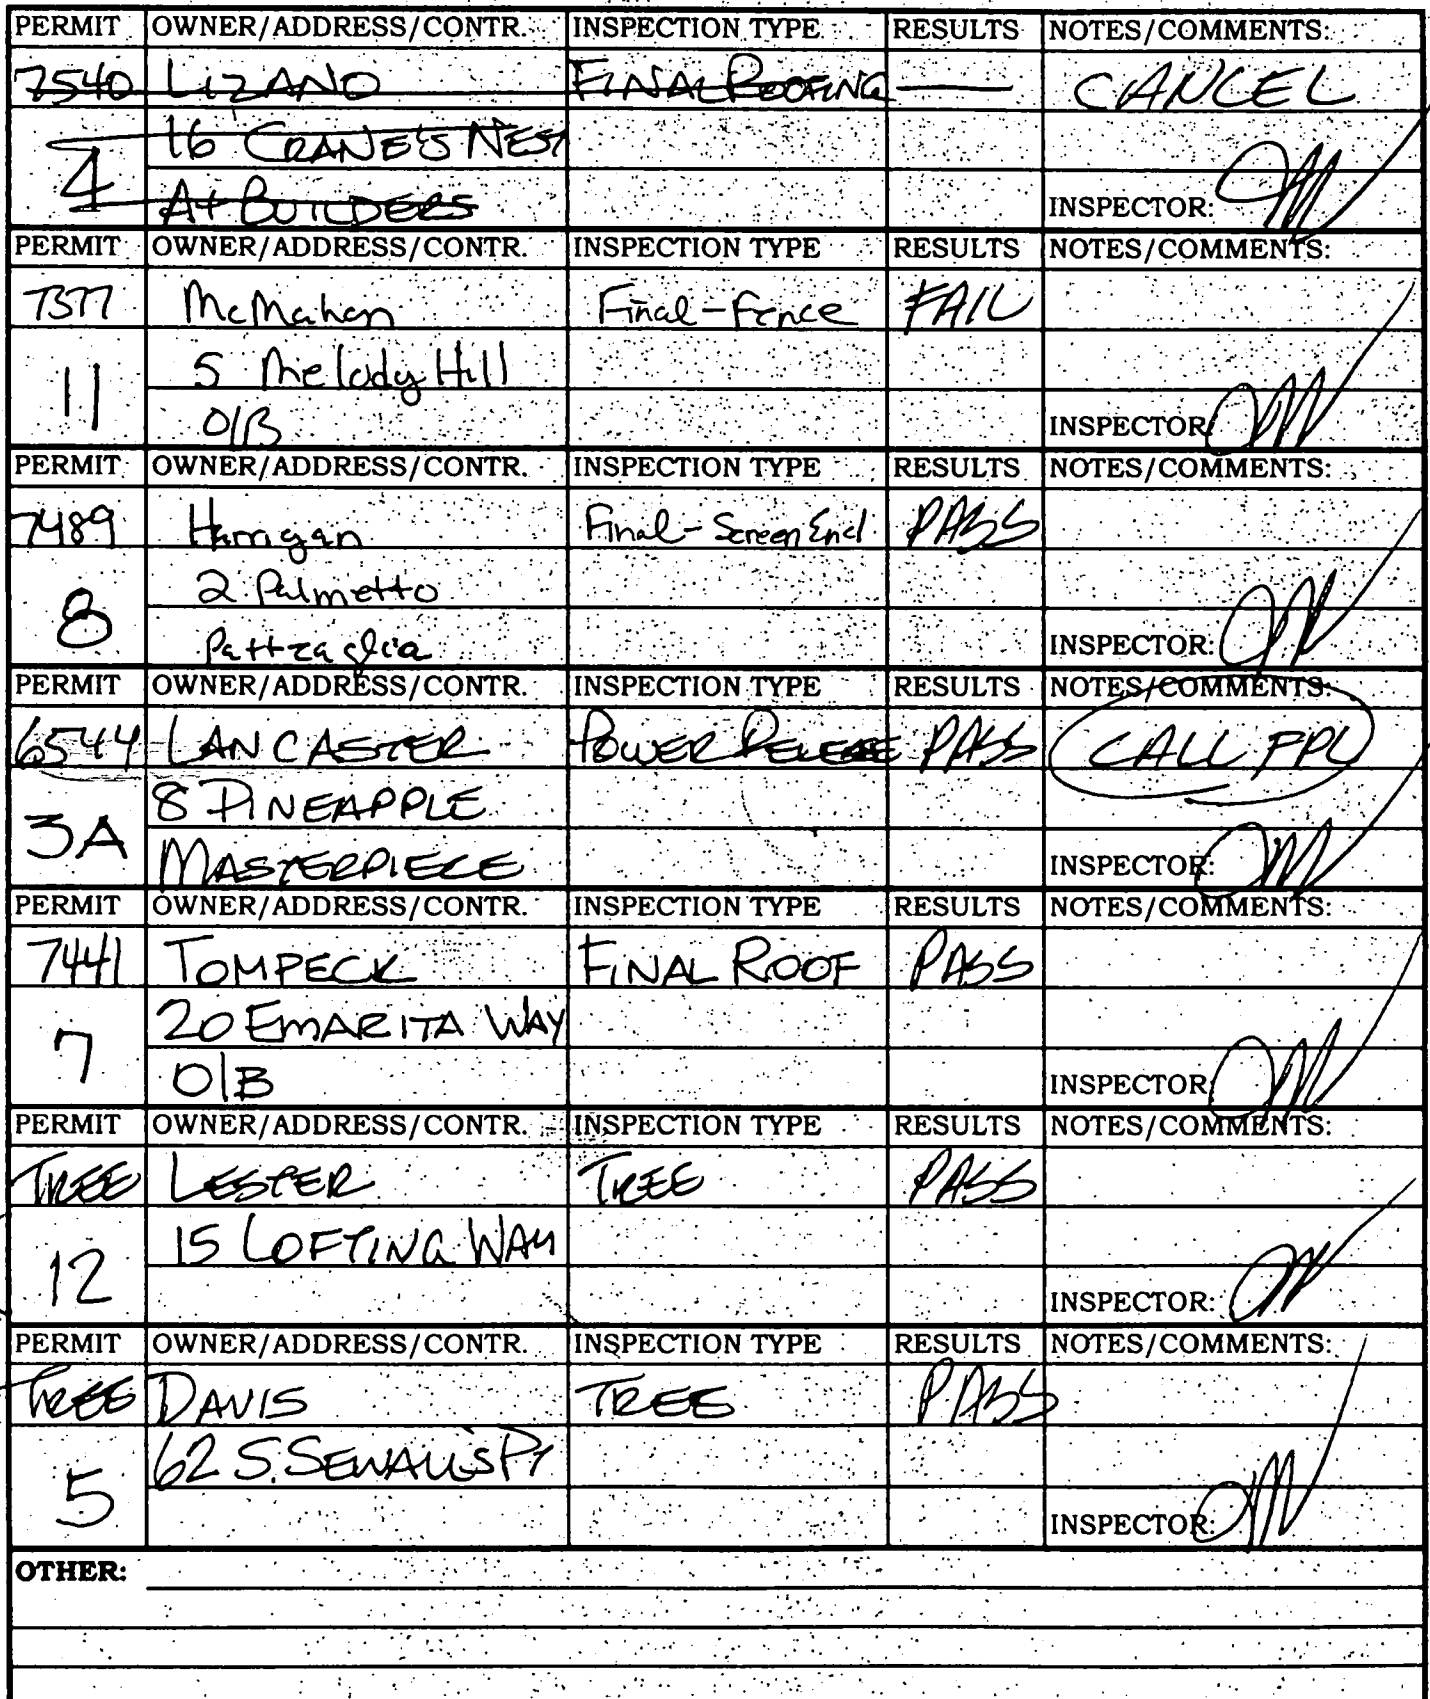 PERMIT OWNER/ADDRESS/CONTR. INSPECTION TYPE RESULTS NOTES/COMMENTS:
7540 LIZANO FINAL ROOFING — CANCEL
16 CRANE'S NEST
4
A+ BUILDERS INSPECTOR:
PERMIT OWNER/ADDRESS/CONTR. INSPECTION TYPE RESULTS NOTES/COMMENTS:
7377 McMahon Final-Fence FAIL
5 Melody Hill
11
O/B INSPECTOR:
PERMIT OWNER/ADDRESS/CONTR. INSPECTION TYPE RESULTS NOTES/COMMENTS:
7489 Harrigan Final-Screen Encl PASS
2 Palmetto
8
INSPECTOR:
PERMIT OWNER/ADDRESS/CONTR. INSPECTION TYPE RESULTS NOTES/COMMENTS:
6544 LANCASTER POWER RELEASE PASS CALL FPL
8 PINEAPPLE
3A
MASTERPIECE INSPECTOR:
PERMIT OWNER/ADDRESS/CONTR. INSPECTION TYPE RESULTS NOTES/COMMENTS:
7441 TOMPECK FINAL ROOF PASS
20 EMARITA WAY
7
O/B INSPECTOR
PERMIT OWNER/ADDRESS/CONTR. INSPECTION TYPE RESULTS NOTES/COMMENTS:
TREE LESTER TREE PASS
15 LOFTING WAY
12
INSPECTOR:
PERMIT OWNER/ADDRESS/CONTR. INSPECTION TYPE RESULTS NOTES/COMMENTS:
TREE DAVIS TREE PASS
62 S. SEWALL'S PT
5
INSPECTOR:
OTHER: